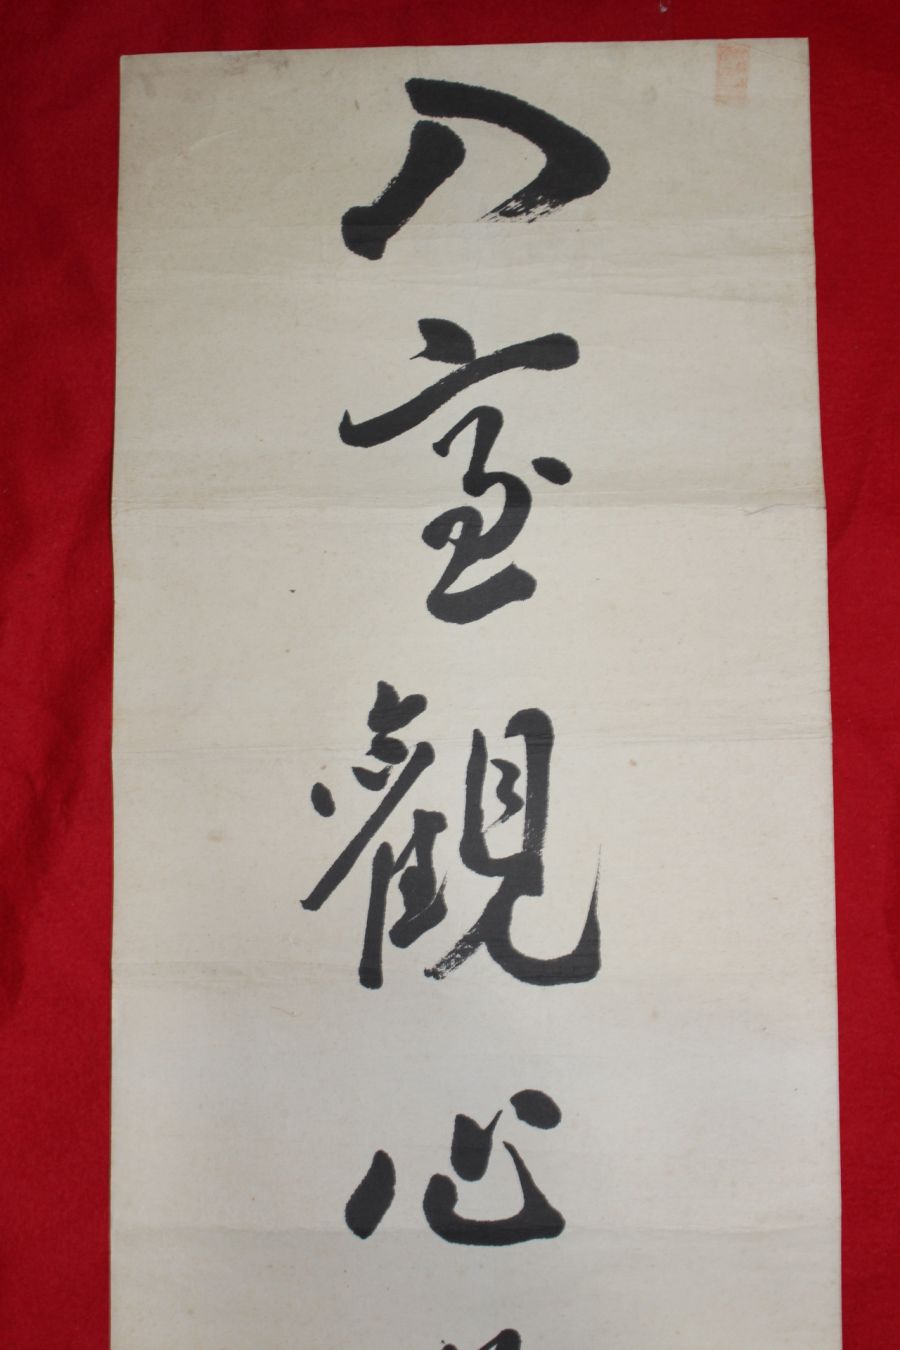 入室觀心